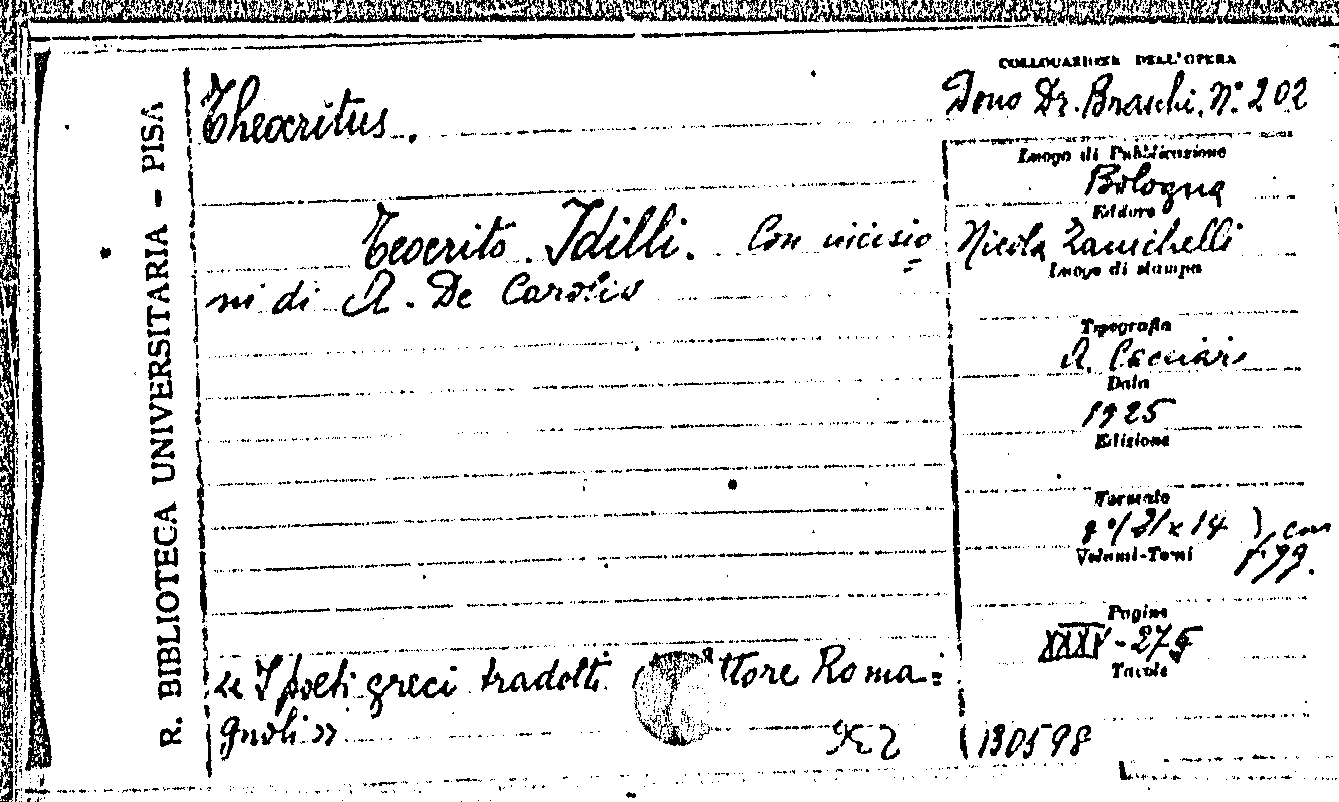 R. BIBLIOTECA UNIVERSITARIA - PISA
COLLOCAZIONE DELL'OPERA
Dono Dr. Braschi. N.° 202
Theocritus.
Teocrito. Idilli. Con incisio=
ni di A. De Carolis
Luogo di Pubblicazione
Bologna
Editore
Nicola Zanichelli
Luogo di stampa
Tipografia
A. Cacciari
Data
1925
Edizione
Formato
(21 x 14), con
figg.
Volumi-Tomi
Pagine
XXXV-275
Tavole
« I poeti greci tradotti ttore Roma=
gnoli »
130598